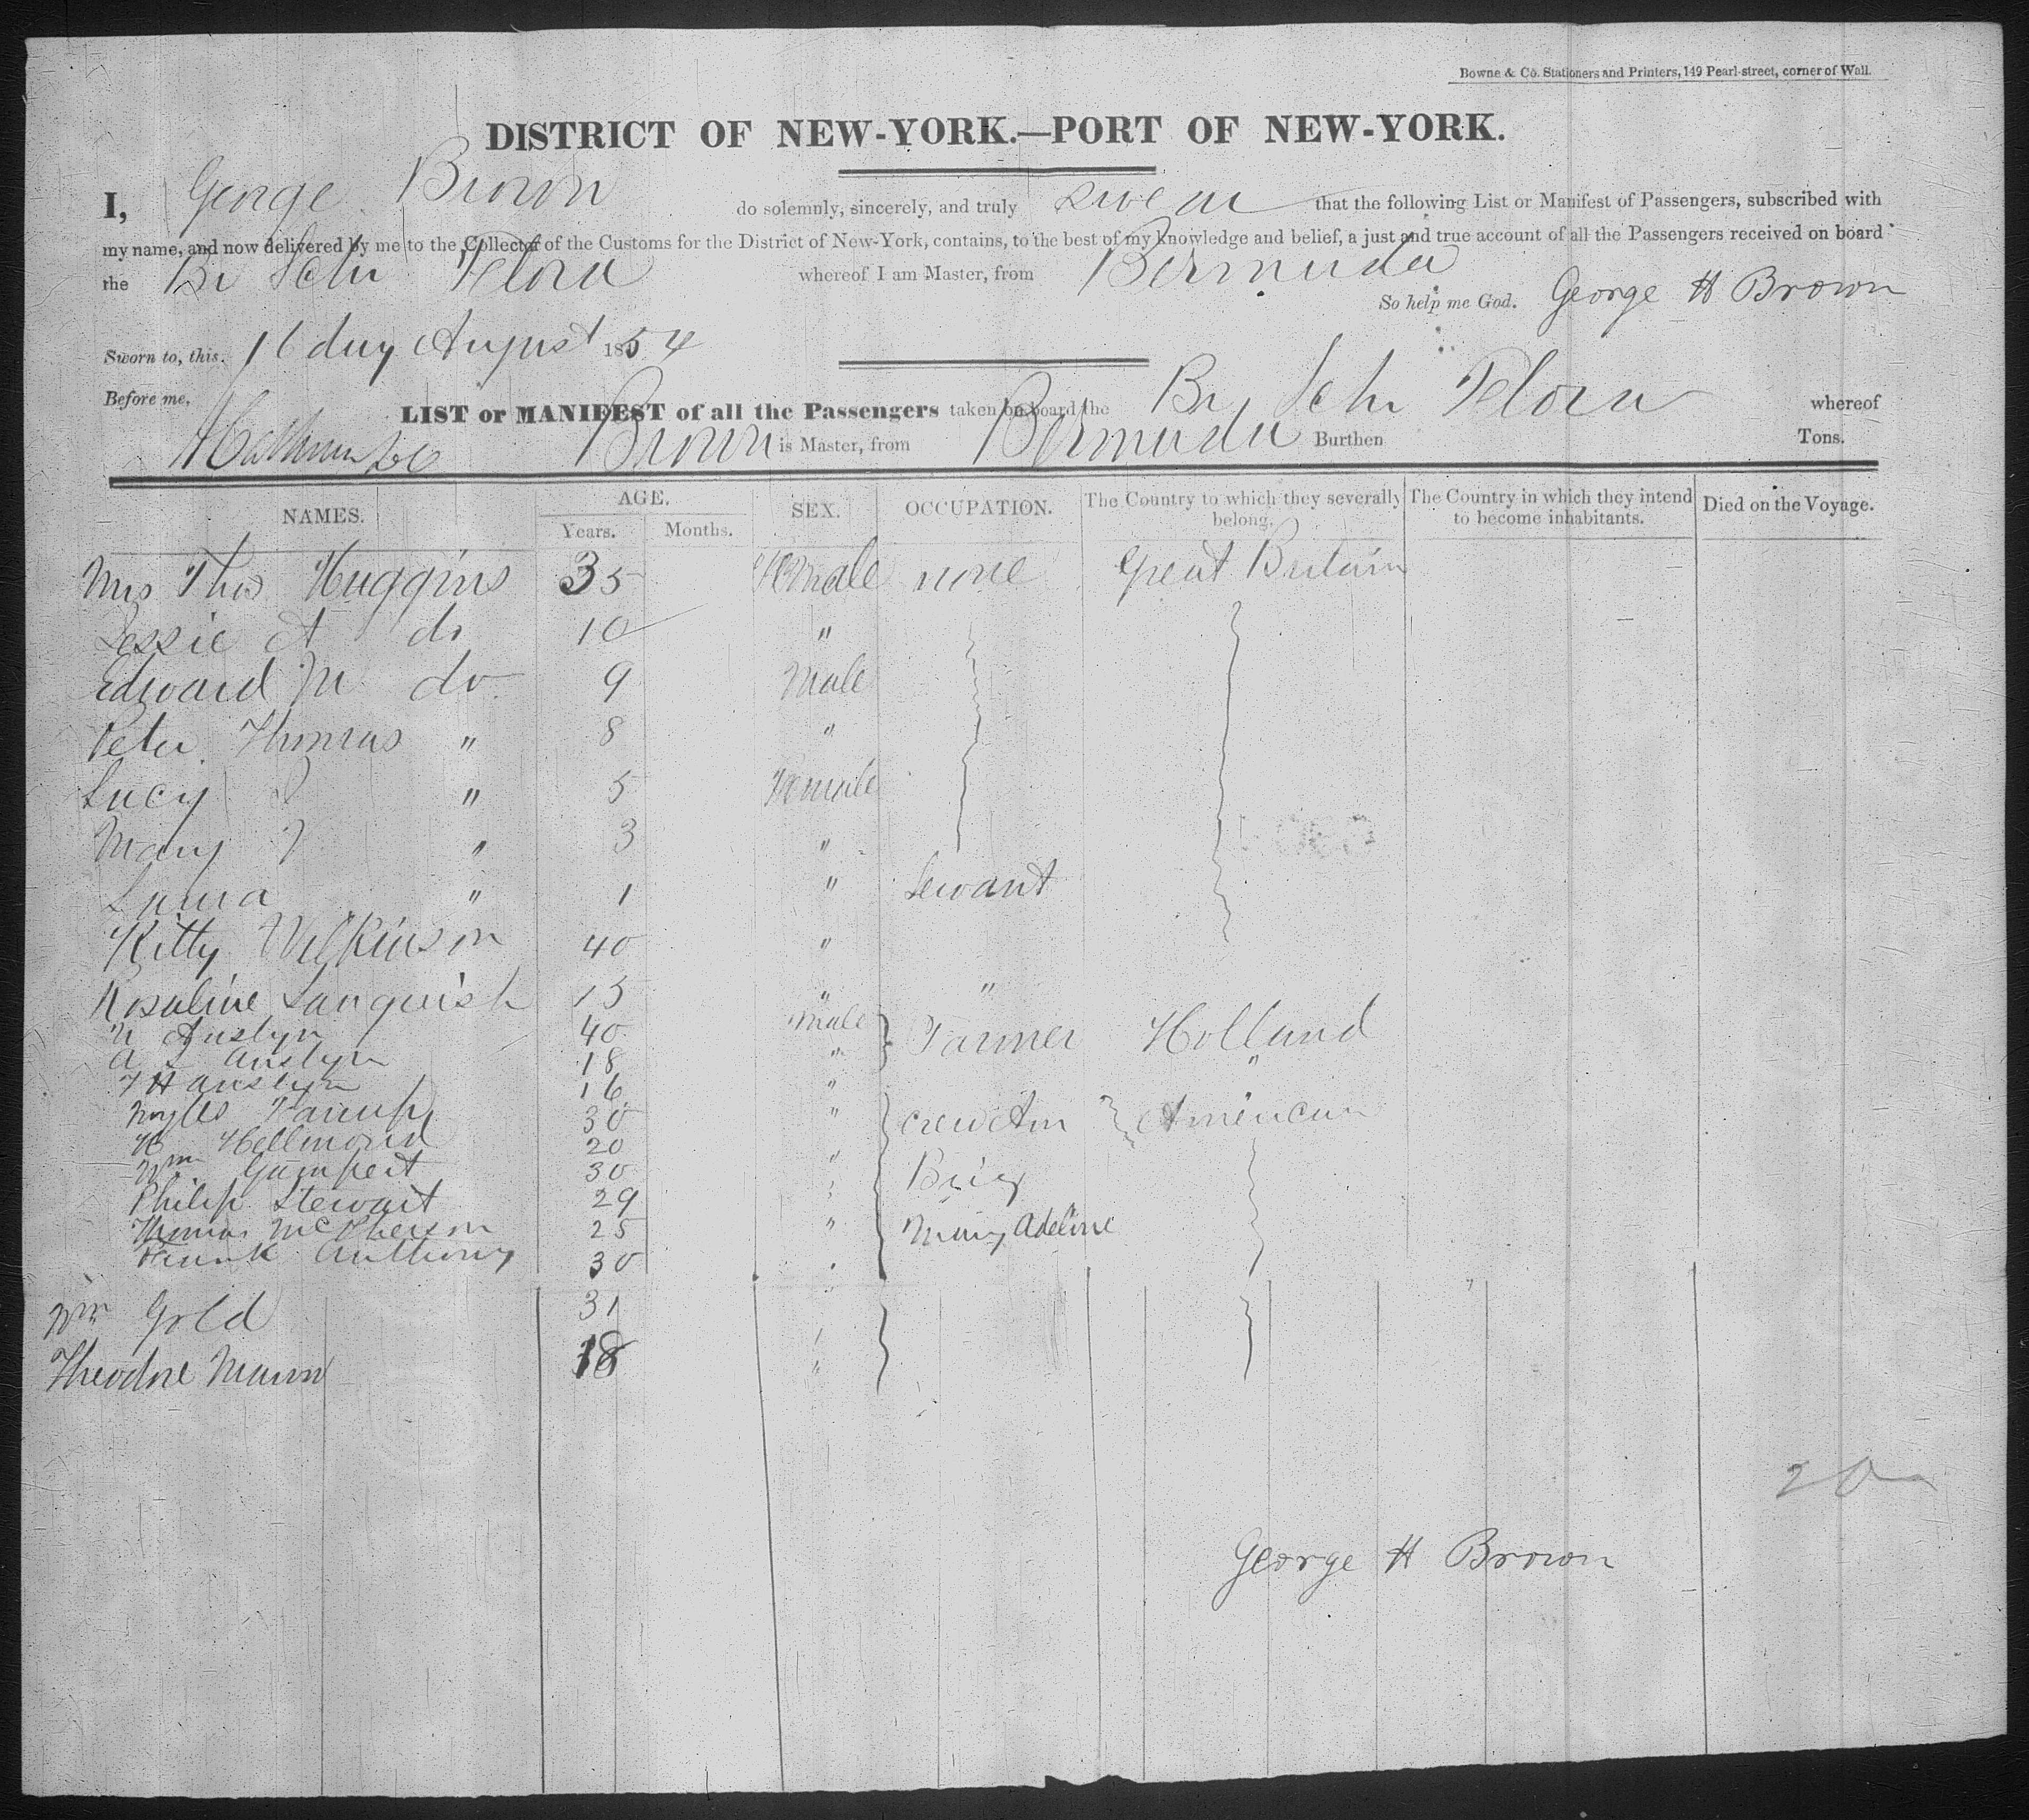 Bowne & Co. Stationers and Printers, 149 Pearl-street, corner of Wall.
DISTRICT OF NEW-YORK.—PORT OF NEW-YORK.
I, George Brown do solemnly, sincerely, and truly swear that the following List or Manifest of Passengers, subscribed with
my name, and now delivered by me to the Collector of the Customs for the District of New-York, contains, to the best of my knowledge and belief, a just and true account of all the Passengers received on board
the Br Schr Flora whereof I am Master, from Bermuda
So help me God. George H Brown
Sworn to, this 16 day August 1854
Before me,
LIST or MANIFEST of all the Passengers taken on board the Br Schr Flora whereof
Brown is Master, from Bermuda Burthen Tons.
NAMES. AGE. SEX. OCCUPATION. The Country to which they severally belong. The Country in which they intend to become inhabitants. Died on the Voyage.
Years. Months.
Mrs Thos Huggins 35 Female none Great Britain
Jessie A do 10 "
Edward M do 9 Male
Peter Thomas " 8 "
Lucy " 5 Female
Mary " 3 "
Laura " 1 " Servant
Kitty Wilkinson 40 "
Rosaline Lanquish 15 " "
N Anslyn 40 Male Farmer Holland
A L Anslyn 18 " "
T H Anslyn 16 "
30 " crew Am American
H Hellmond 20 "
Wm Gumpert 30 " Brig
Philip Stewart 29 "
Thomas McPherson 25 " Mary Adeline
Frank Anthony 30 "
Wm Gold 31 "
Theodore Mann 18 "
20
George H Brown